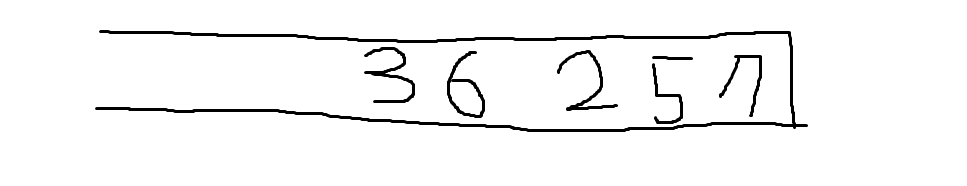 3 6 2 5 7